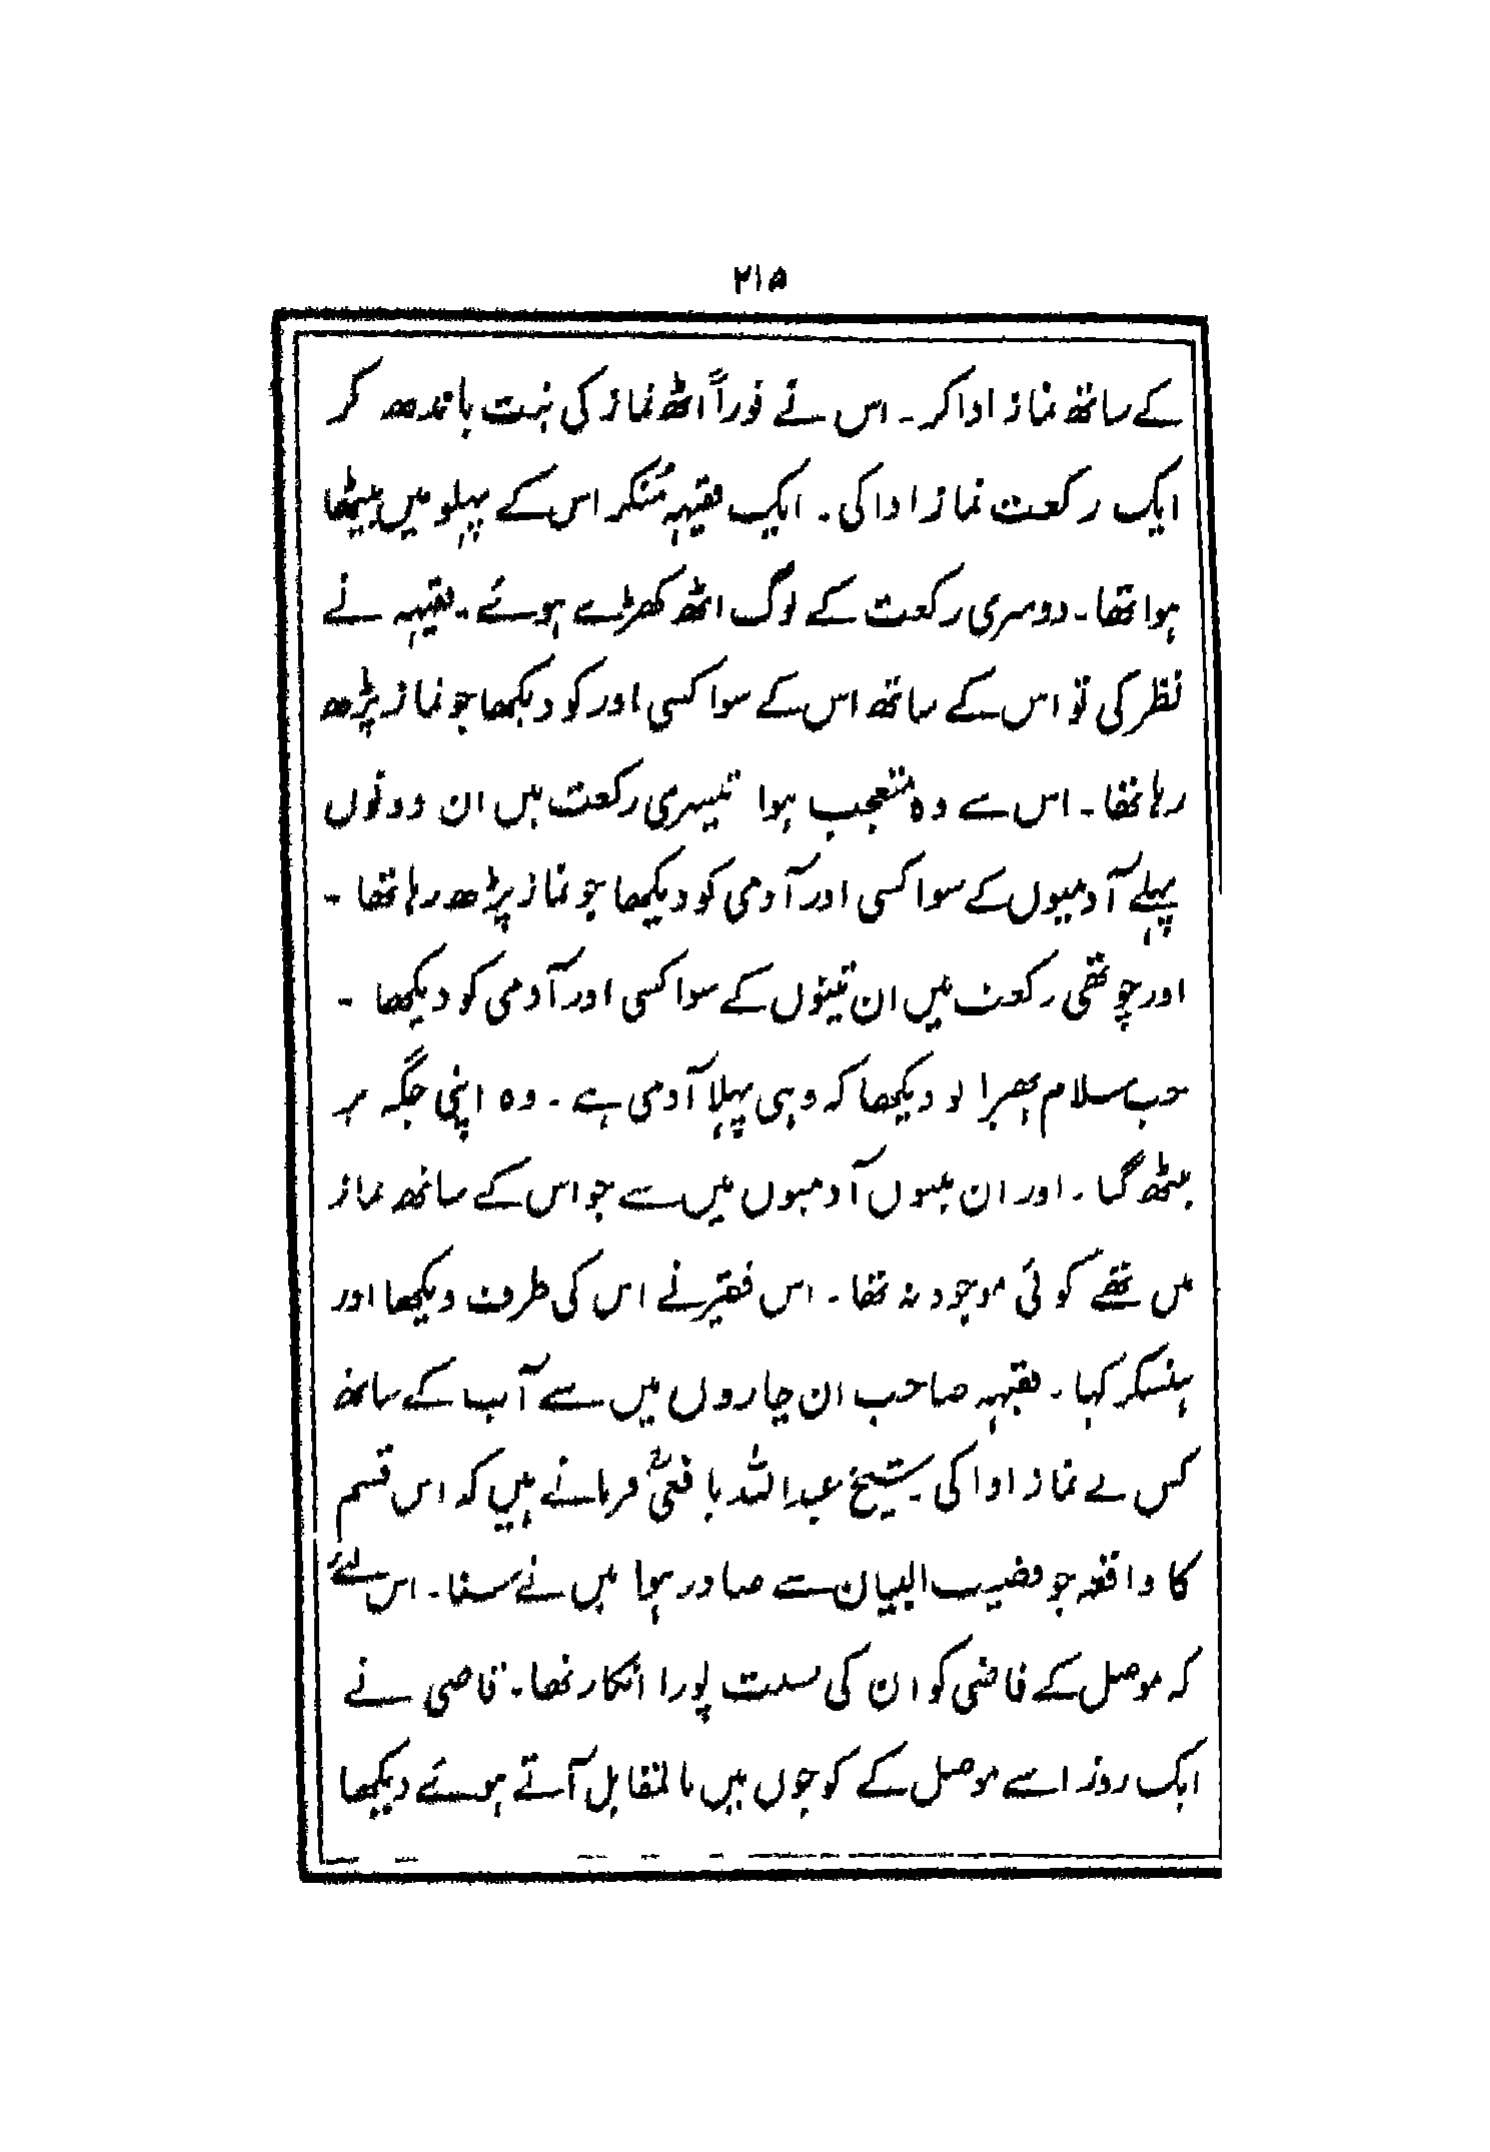 ۲۱۵
کے ساتھ نماز ادا کر۔ اس نے فوراً اٹھ نماز کی نیت باندھ کر
ایک رکعت نماز ادا کی۔ ایک فقیہہ مُنکر اس کے پہلو میں بیٹھا
ہوا تھا۔ دوسری رکعت کے لوگ اٹھ کھڑے ہوئے۔ فقیہہ نے
نظر کی تو اس کے ساتھ اس کے سوا کسی اور کو دیکھا جو نماز پڑھ
رہا تھا۔ اس سے وہ متعجب ہوا تیسری رکعت میں ان دونوں
پہلے آدمیوں کے سوا کسی اور آدمی کو دیکھا جو نماز پڑھ رہا تھا ۔
اور چوتھی رکعت میں ان تینوں کے سوا کسی اور آدمی کو دیکھا ۔
جب سلام پھیرا تو دیکھا کہ وہی پہلا آدمی ہے ۔ وہ اپنی جگہ پر
بیٹھ گیا ۔ اور ان تینوں آدمیوں میں سے جو اس کے ساتھ نماز
میں تھے کوئی موجود نہ تھا ۔ اس فقیر نے اس کی طرف دیکھا اور
ہنسکر کہا ۔ فقیہہ صاحب ان چاروں میں سے آپ کے ساتھ
کس نے نماز ادا کی ۔ شیخ عبداللہ یافعیؒ فرماتے ہیں کہ اس قسم
کا واقعہ جو قضیب البیان سے صادر ہوا میں نے سنا ۔ اس لئے
کہ موصل کے قاضی کو ان کی نسبت پورا انکار تھا ۔ قاضی نے
ایک روز اسے موصل کے کوچوں میں بالمقابل آتے ہوئے دیکھا